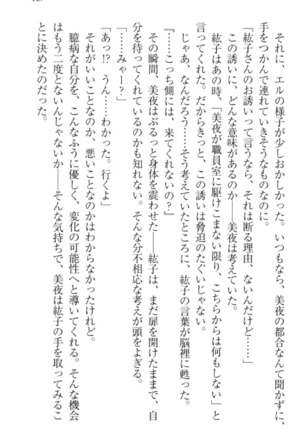 それに、エルの様子が少しおかしかった。いつもなら、美夜の都合なんて聞かずに、
手をつかんで連れていきそうなものなのに。
「紘子さんのお誘いって言うなら、それは断る理由、ないんだけど……」
この誘いに、どんな意味があるのか――美夜は考えていた。
紘子はあの時、「美夜が職員室に駆けこまない限り、こちらからは何もしない」と
言ってくれた。だからきっと、この誘いは脅迫のたぐいじゃない。
じゃあ、なんだろう……そう考えていたところに、紘子の言葉が脳裡に甦った。
『……こっち側には、来てくれないの?』
その瞬間、美夜はぶるっと身体を震わせた――紘子は、まだ扉を開けたままで、自
分を待ってくれているのかも知れない。そんな分不相応な考えが頭をよぎる。
「……みゃー?」
「あっ!? うん……わかった。行くよ」
それがいいことなのか、悪いことなのかはわからなかったけれど。
臆病な自分を、こんなふうに優しく、変化の可能性へと導いてくれる。そんな機会
はもう二度とないんじゃないか――そんな気持ちで、美夜は紘子の手を取ってみるこ
とに決めたのだった。